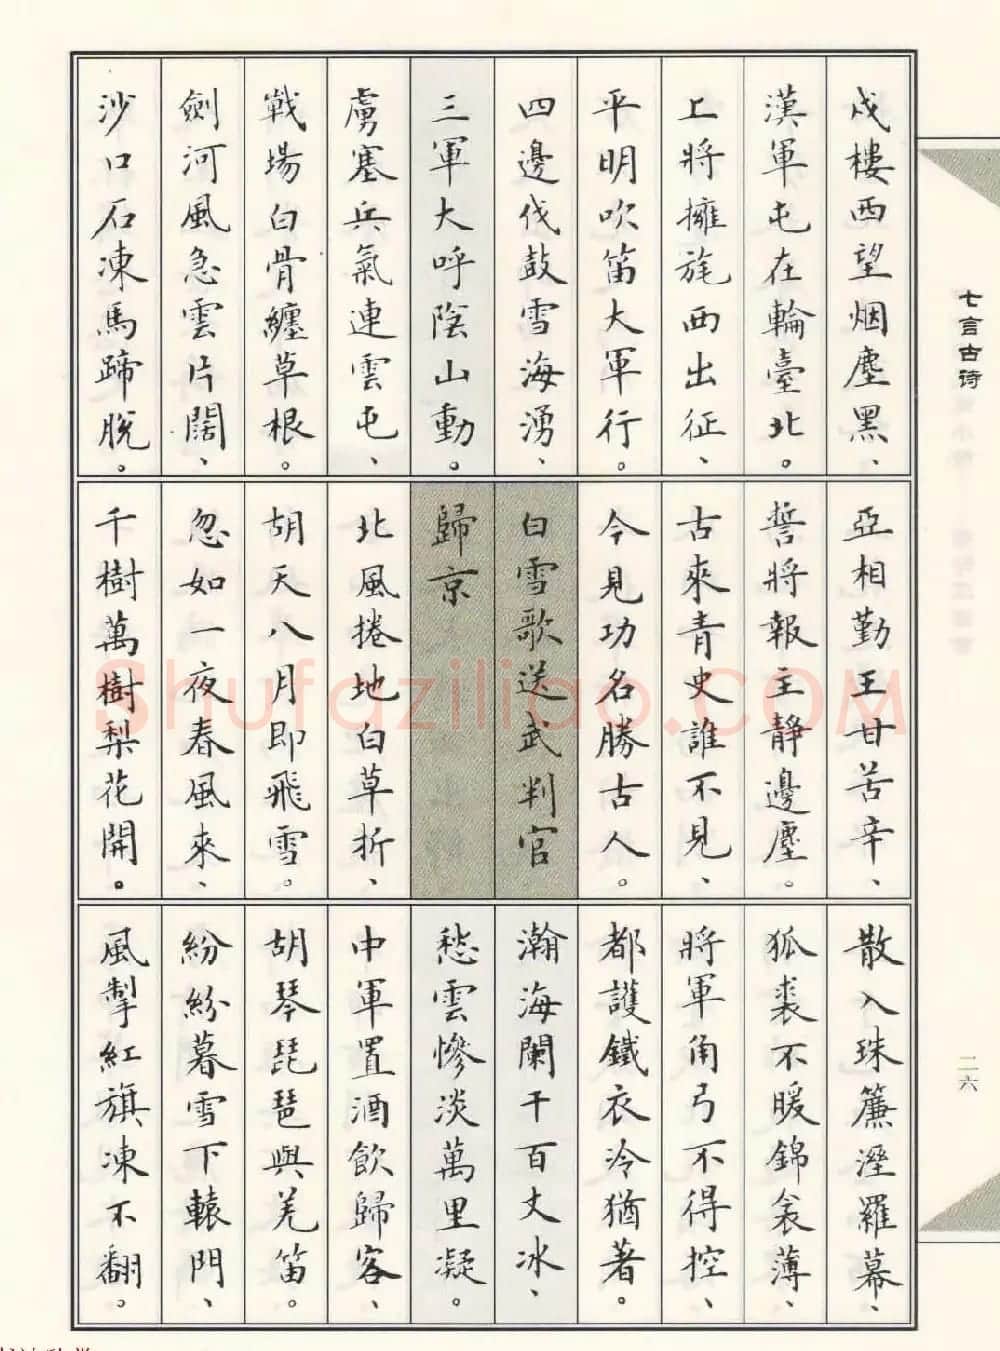 七言古诗
戍樓西望烟塵黑、
漢軍屯在輪臺北。
上將擁旄西出征、
平明吹笛大軍行。
四邊伐鼓雪海湧、
三軍大呼陰山動。
虜塞兵氣連雲屯、
戰場白骨纏草根。
劍河風急雲片闊、
沙口石凍馬蹄脫。
亞相勤王甘苦辛、
誓將報主靜邊塵。
古來青史誰不見、
今見功名勝古人。
白雪歌送武判官
歸京
北風捲地白草折、
胡天八月即飛雪。
忽如一夜春風來、
千樹萬樹梨花開。
散入珠簾溼羅幕、
狐裘不暖錦衾薄、
將軍角弓不得控、
都護鐵衣冷猶著。
瀚海闌干百丈冰、
愁雲慘淡萬里凝。
中軍置酒飲歸客、
胡琴琵琶與羌笛。
紛紛暮雪下轅門、
風掣紅旗凍不翻。
二六
Shufaziliao.COM